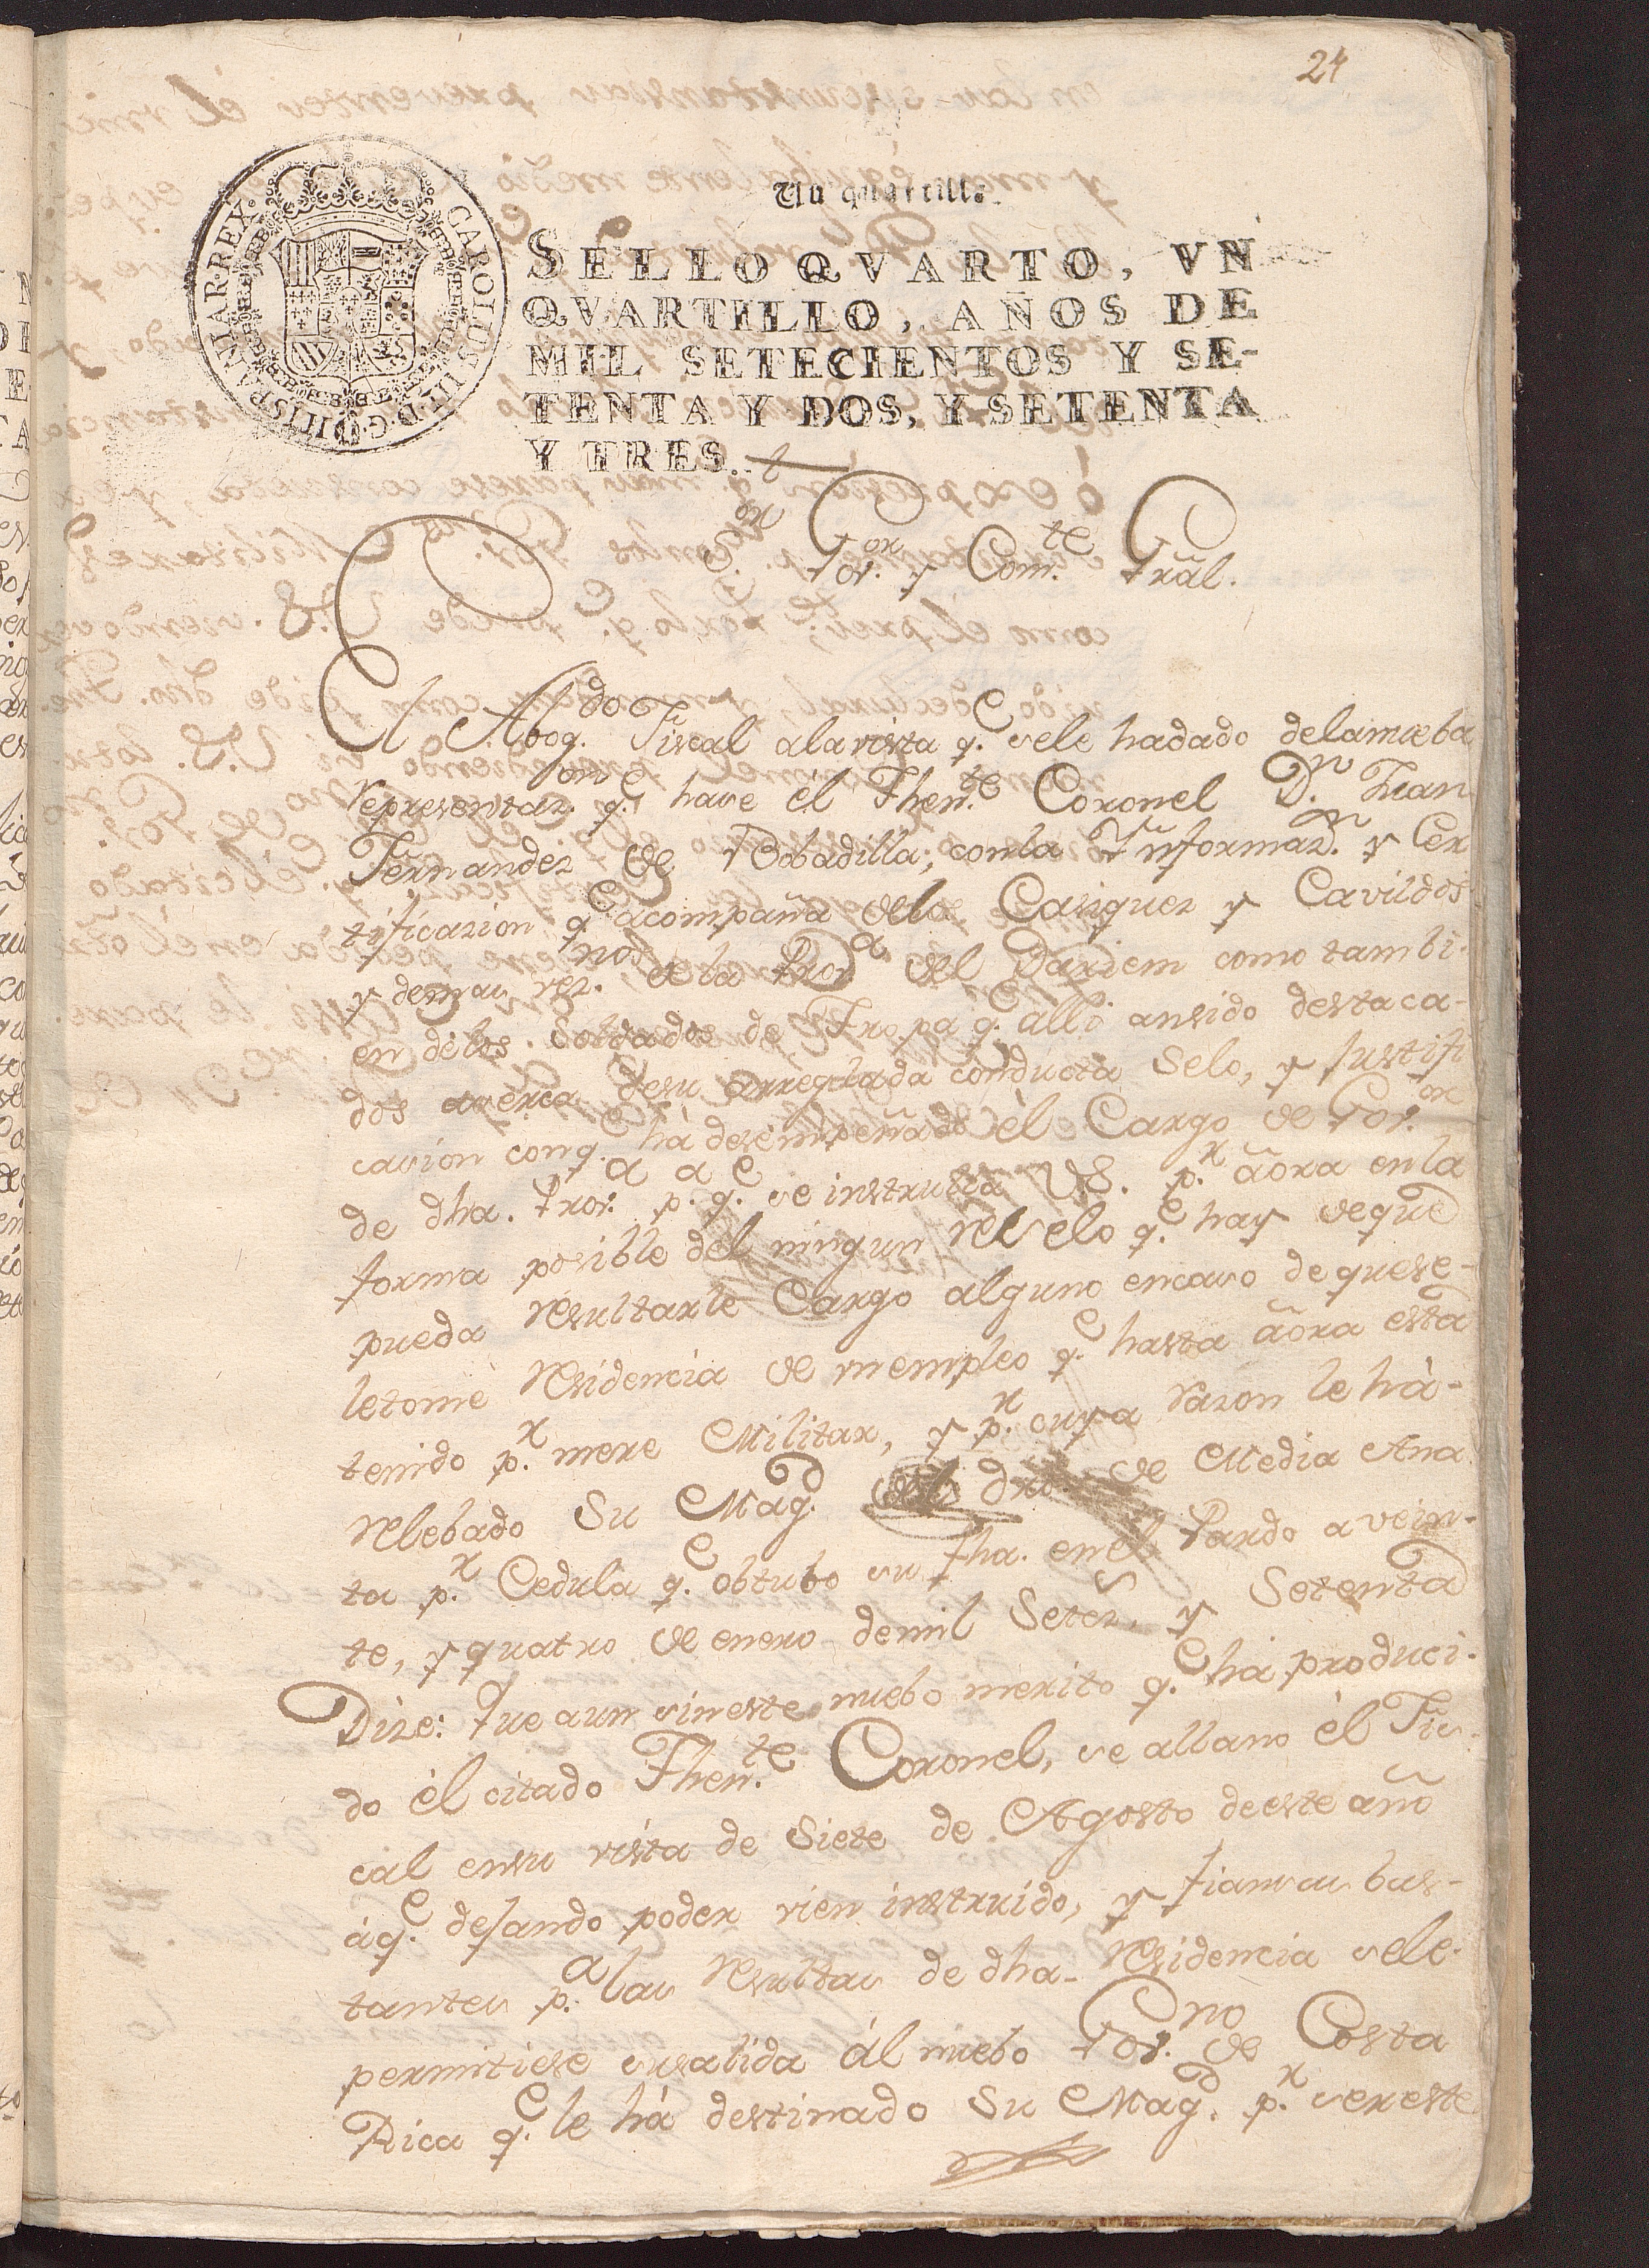 24
Un quartillo.
CAROLUS III D. G. HISPANIAR. REX.
SELLO QVARTO, VN
QVARTILLO, AÑOS DE
MIL SETECIENTOS Y SE-
TENTA Y DOS, Y SETENTA
Y TRES.
S.or Gov.or y Com.te Grãl.
El Abog.do Fiscal ala vista q.e sele hadado delanueba
representaz.on q.e hace él Then.te Coronel D.n Juan
Fernandez de Bobadilla, conla Ynformaz.n y Cer
tificazion q.e acompaña delos Casiques y Cavildos
y demas vez.nos dela Prov.a del Dariem como tambi-
en délos Soldados de Tropa q.e alli ansido destaca-
dos acerca desu arreglada conducta Selo, y Justifi
cacion conq.e há desempeñado él Cargo de Gov.or
de dha. Prov.a p.a q.e se instrulla VS. p.r aõra enla
forma posible del ningun reselo q.e hay deque
pueda resultarle Cargo alguno encaso de quese-
letome residencia de un empleo q.e hasta aõra está
tenido p.r mere Militar, y p.r cuya razon le há-
relebado Su Mag.d del dro. de Media Ana
ta p.r Cedula q.e obtubo su fha. en él Pardo a vein-
te, y quatro de enero demil Setez. y Setenta
Dize: Que aun sin este nuebo merito q.e há produci-
do él citado Then.te Coronel, se allano él Fis-
cal ensu vista de Siete de Agosto deeste año
áq.e dejando poder vien instruido, y fiansas bas-
tantes p.a las resultas de dha. residencia sele-
permitiese susalida ál nuebo Gov.no de Costa
Rica q.e le há destinado Su Mag.d p.r ser este